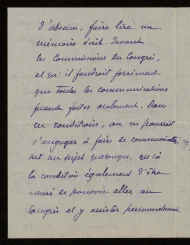 d'absence, faire lire un
mémoire écrit devant
les commissions du Congrès,
et qu'il faudrait forcément
que toutes les communications
fussent faites oralement. Dans
ces conditions, on ne pourrait
s'engager à faire de communication
sur un sujet quelconque, qu'à
la condition également d'être
assuré de pouvoir aller au
Congrès et y assister personnellement.